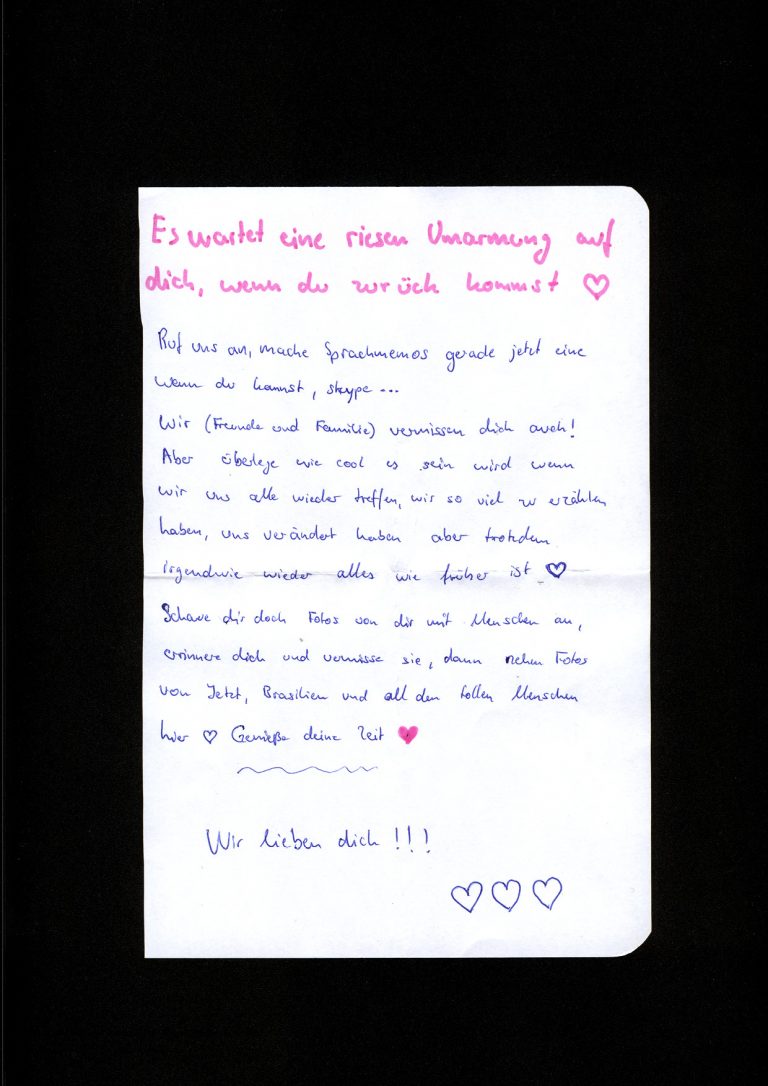 Es wartet eine riesen Umarmung auf
dich, wenn du zurück kommst ♡
Ruf uns an, mache Sprachmemos gerade jetzt eine
wenn du kannst, skype ...
Wir (Freunde und Familie) vermissen dich auch!
Aber überlege wie cool es sein wird wenn
wir uns alle wieder treffen, wir so viel zu erzählen
haben, uns verändert haben aber trotzdem
irgendwie wieder alles wie früher ist ♡
Schaue dir doch Fotos von dir mit Menschen an,
erinnere dich und vermisse sie, dann nehm Fotos
von Jetzt, Brasilien und all den tollen Menschen
hier ♡ Genieße deine Zeit ♥
Wir lieben dich !!!
♡ ♡ ♡